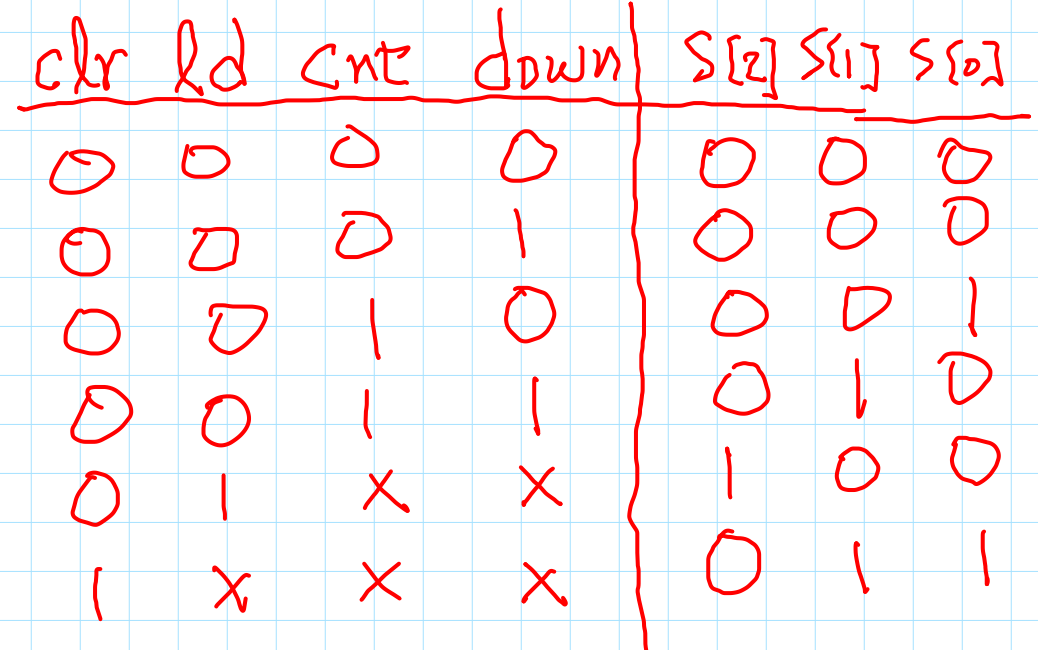 clr ld cnt down S[2] S[1] S[0]
0 0 0 0 0 0 0
0 0 0 1 0 0 0
0 0 1 0 0 0 1
0 0 1 1 0 1 0
0 1 x x 1 0 0
1 x x x 0 1 1